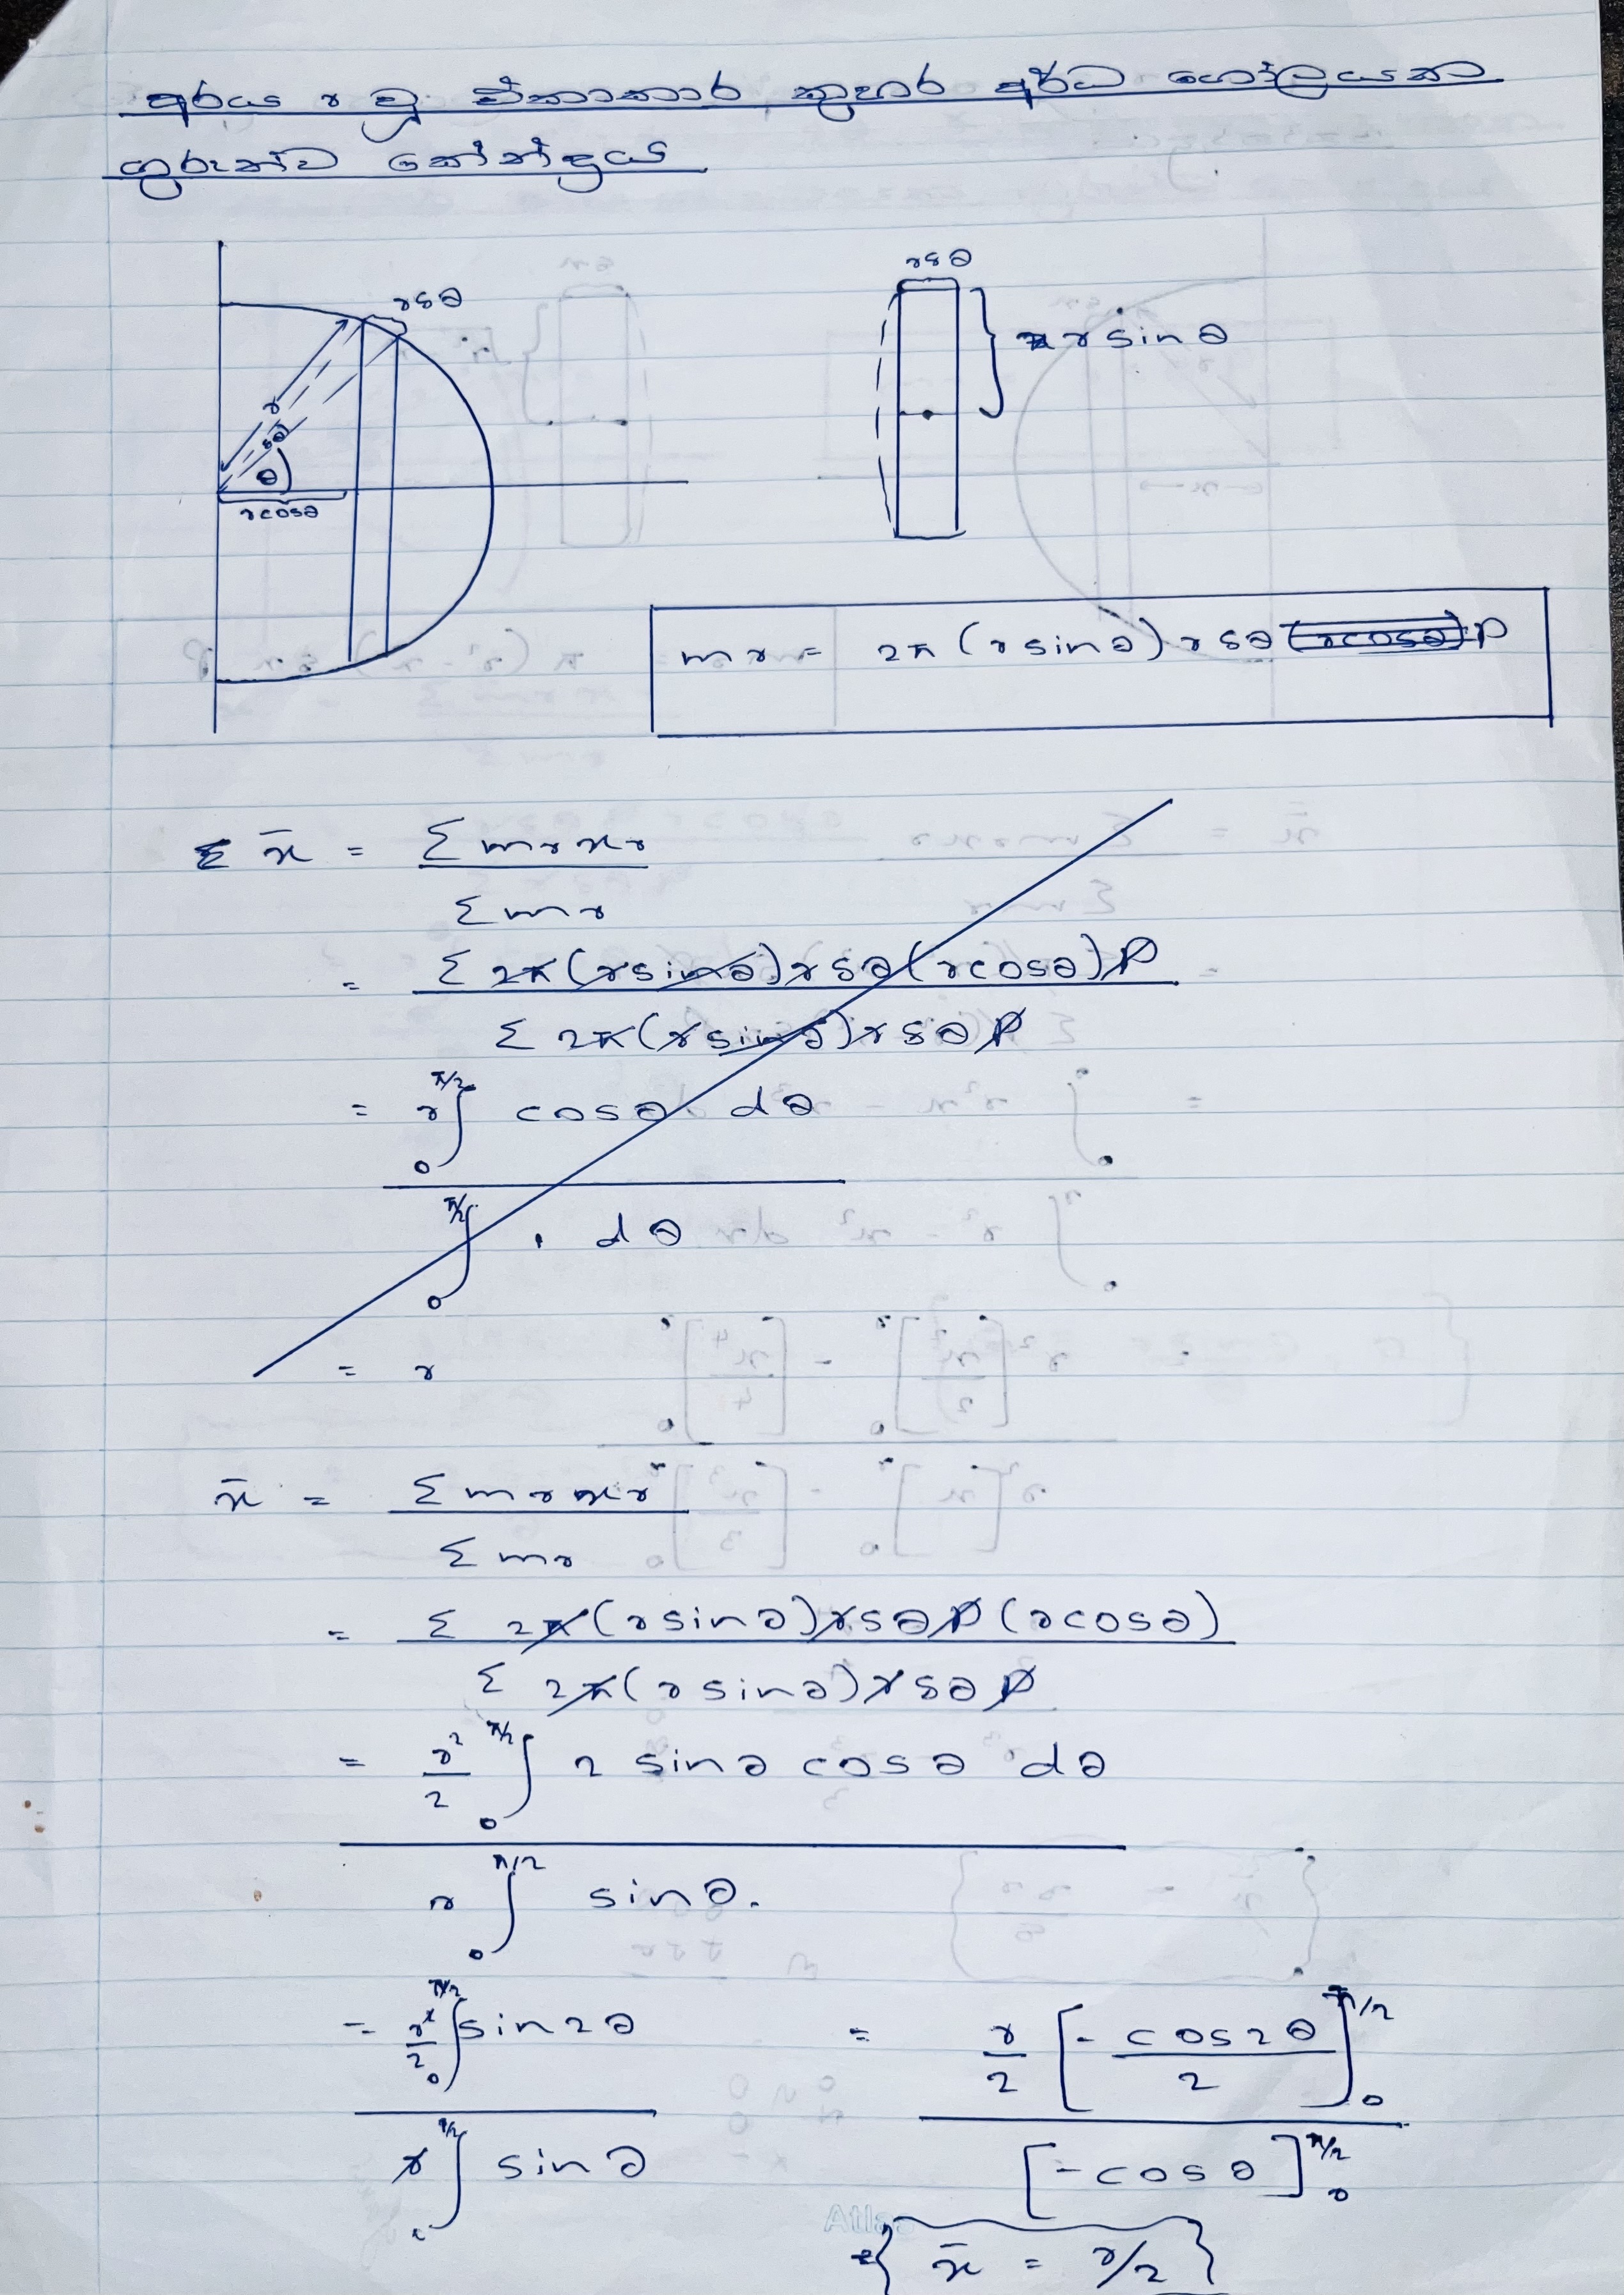 අරය r වූ ඒකාකාර කුහර අර්ධ ගෝලයක
ගුරුත්ව කේන්ද්‍රය
rδθ
r
δθ
θ
rcosθ
rδθ
r sin θ
mr = 2π (r sinθ) r δθ (rcosθ) ρ
x̄ = Σ mr xr
Σ mr
= Σ 2π (r sinθ) r δθ (rcosθ) ρ
Σ 2π (r sinθ) r δθ ρ
= r ∫₀^π/2 cosθ dθ
∫₀^π/2 . dθ
= r
x̄ = Σ mr xr
Σ mr
= Σ 2π (r sinθ) r δθ ρ (rcosθ)
Σ 2π (r sinθ) r δθ ρ
= r²/2 ∫₀^π/2 2 sinθ cosθ dθ
r ∫₀^π/2 sinθ.
= r²/2 ∫₀^π/2 sin2θ = r/2 [- cos2θ/2]₀^π/2
r ∫₀^π/2 sinθ [-cosθ]₀^π/2
Atlas
x̄ = r/2